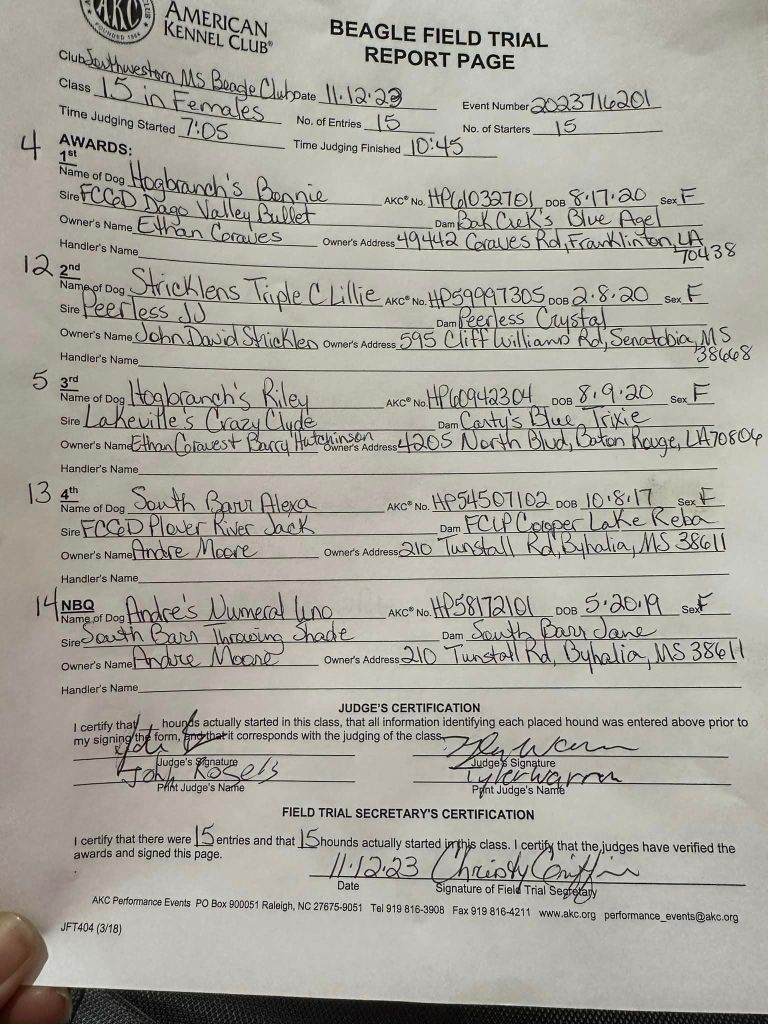 AKC FOUNDED 1884 CLUB
AMERICAN
KENNEL CLUB®
BEAGLE FIELD TRIAL
REPORT PAGE
Club Southwestern MS Beagle Club Date 11.12.23
Class 15 in Females Event Number 2023716201
Time Judging Started 7:05 No. of Entries 15 No. of Starters 15
Time Judging Finished 10:45
4 AWARDS:
1st
Name of Dog Hogbranch's Bonnie AKC® No. HP61032701 DOB 8.17.20 Sex F
Sire FCGD Dago Valley Bullet Dam Bak Crek's Blue Agel
Owner's Name Ethan Graves Owner's Address 49442 Graves Rd, Franklinton, LA
70438
Handler's Name
12 2nd
Name of Dog Stricklens Triple C Lillie AKC® No. HP59997305 DOB 2.8.20 Sex F
Sire Peerless JJ Dam Peerless Crystal
Owner's Name John David Stricklen Owner's Address 595 Cliff Williams Rd, Senatobia, MS
38668
Handler's Name
5 3rd
Name of Dog Hogbranch's Riley AKC® No. HP60942304 DOB 8.9.20 Sex F
Sire Lakeville's Crazy Clyde Dam Carty's Blue Trixie
Owner's Name Ethan Graves + Barry Hutchinson Owner's Address 4205 North Blvd, Baton Rouge, LA 70806
Handler's Name
13 4th
Name of Dog South Barr Alexa AKC® No. HP54507102 DOB 10.8.17 Sex F
Sire FCGD Plover River Jack Dam FCLP Cooper Lake Reba
Owner's Name Andre Moore Owner's Address 210 Tunstall Rd, Byhalia, MS 38611
Handler's Name
14 NBQ
Name of Dog Andre's Numeral Uno AKC® No. HP58172101 DOB 5.20.19 Sex F
Sire South Barr Throwing Shade Dam South Barr Jane
Owner's Name Andre Moore Owner's Address 210 Tunstall Rd, Byhalia, MS 38611
Handler's Name
JUDGE'S CERTIFICATION
I certify that hounds actually started in this class, that all information identifying each placed hound was entered above prior to
my signing the form, and that it corresponds with the judging of the class.
Judge's Signature Judge's Signature
John Tyler Warren
Print Judge's Name Print Judge's Name
FIELD TRIAL SECRETARY'S CERTIFICATION
I certify that there were 15 entries and that 15 hounds actually started in this class. I certify that the judges have verified the
awards and signed this page.
11.12.23 Christy Griffin
Date Signature of Field Trial Secretary
AKC Performance Events PO Box 900051 Raleigh, NC 27675-9051 Tel 919 816-3908 Fax 919 816-4211 www.akc.org performance_events@akc.org
JFT404 (3/18)